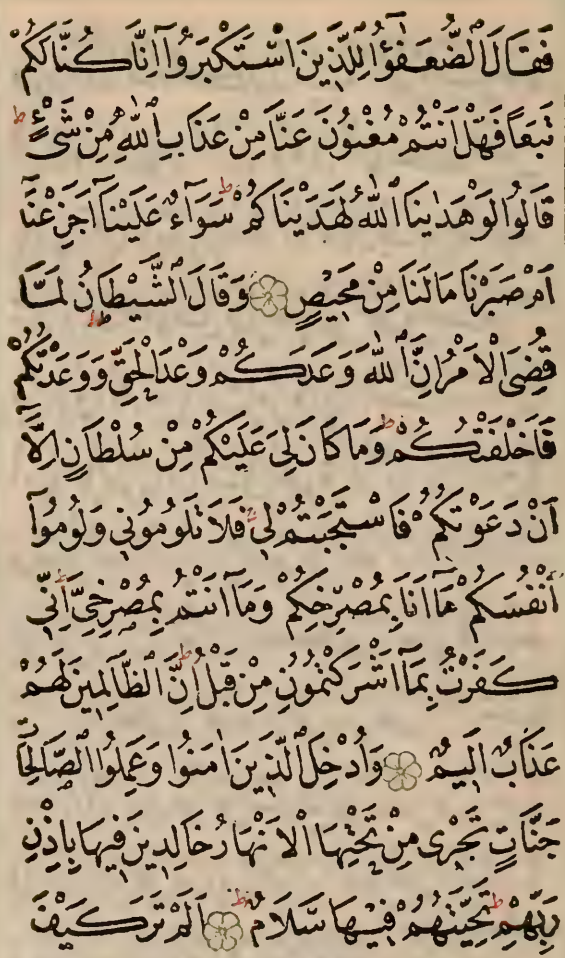 فَقَالَ الضُّعَفٰٓؤُا لِلَّذِينَ اسْتَكْبَرُوٓا اِنَّا كُنَّا لَكُمْ
تَبَعًا فَهَلْ اَنْتُمْ مُغْنُونَ عَنَّا مِنْ عَذَابِ اللّٰهِ مِنْ شَىْءٍ ط
قَالُوا لَوْ هَدٰينَا اللّٰهُ لَهَدَيْنَاكُمْ ط سَوَآءٌ عَلَيْنَآ اَجَزِعْنَآ
اَمْ صَبَرْنَا مَا لَنَا مِنْ مَحِيصٍ وَقَالَ الشَّيْطَانُ لَمَّا
قُضِىَ الْاَمْرُ اِنَّ اللّٰهَ وَعَدَكُمْ وَعْدَ الْحَقِّ وَوَعَدْتُكُمْ
فَاَخْلَفْتُكُمْ ط وَمَا كَانَ لِىَ عَلَيْكُمْ مِنْ سُلْطَانٍ اِلَّآ
اَنْ دَعَوْتُكُمْ فَاسْتَجَبْتُمْ لِى فَلَا تَلُومُونِى وَلُومُوٓا
اَنْفُسَكُمْ مَآ اَنَا بِمُصْرِخِكُمْ وَمَآ اَنْتُمْ بِمُصْرِخِىَّ اِنِّى
كَفَرْتُ بِمَآ اَشْرَكْتُمُونِ مِنْ قَبْلُ ط اِنَّ الظَّالِمِينَ لَهُمْ
عَذَابٌ اَلِيمٌ وَاُدْخِلَ الَّذِينَ اٰمَنُوا وَعَمِلُوا الصَّالِحَاتِ
جَنَّاتٍ تَجْرِى مِنْ تَحْتِهَا الْاَنْهَارُ خَالِدِينَ فِيهَا بِاِذْنِ
رَبِّهِمْ ط تَحِيَّتُهُمْ فِيهَا سَلَامٌ اَلَمْ تَرَ كَيْفَ